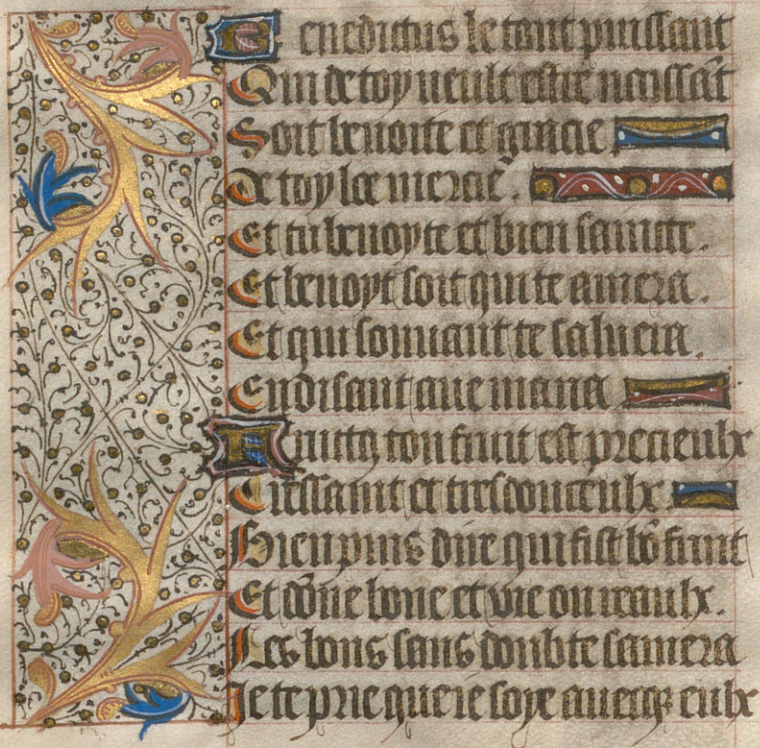 Benedictus le tout puissant
Qui de toy veult estre naissāt
Soit benoite et gracie
De toy loe mercie.
Et tu benoyte et bien saincte.
Et benoyt soit qui te amera.
Et qui souuant te saluera.
En disant aue maria
Fructꝫ ton fruit est precieulx
Tressaint et tresdouceulx
Bien puis dire qui fist bō fruit
Et dōne bone et vie ou
Les bons sans doubte lamera
Je te prie que ie soye auecqꝫ eulx